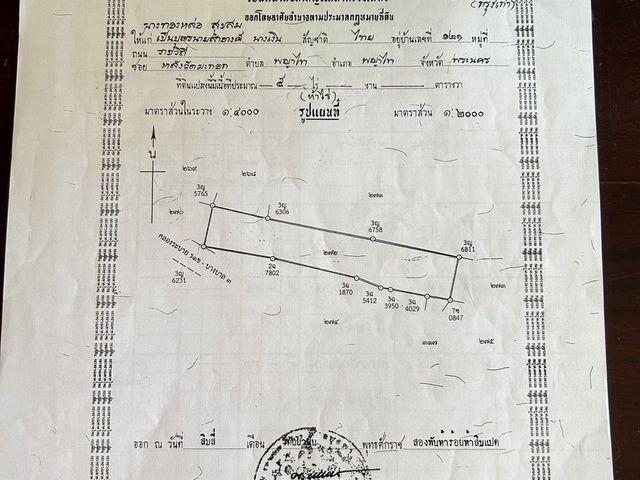 ออกโดยอาศัยอำนาจตามประมวลกฎหมายที่ดิน
นางทองหล่อ สุขสม
ให้แก่ เป็นบุตรนายสำอางค์ นางเงิน สัญชาติ ไทย อยู่บ้านเลขที่ ๑๒๑ หมู่ที่
ถนน ราชวิถี
ซอย หลังวัดมะกอก ตำบล พญาไท อำเภอ พญาไท จังหวัด พระนคร
ที่ดินแปลงนี้มีเนื้อที่ประมาณ ๕ ไร่ งาน ตารางวา
(ห้าไร่)
มาตราส่วนในระวาง ๑:๔๐๐๐ รูปแผนที่ มาตราส่วน ๑:๒๐๐๐
น
๒๖๙ ๒๖๘ ๒๗๑
3ญ
5765
๒๗๐
3ญ
6306
3ญ
6758
3ญ
6811
๒๗๒
3ญ
6231
2ฉ
7802
3ฉ
1870
3ฉ
5412
3ฉ
3950
3ฉ
4029
7ซ
0847
๒๗๓
๒๗๔
๓๑๗
๒๗๕
ออก ณ วันที่ สิบสี่ เดือน พุทธศักราช สองพันห้าร้อยห้าสิบแปด